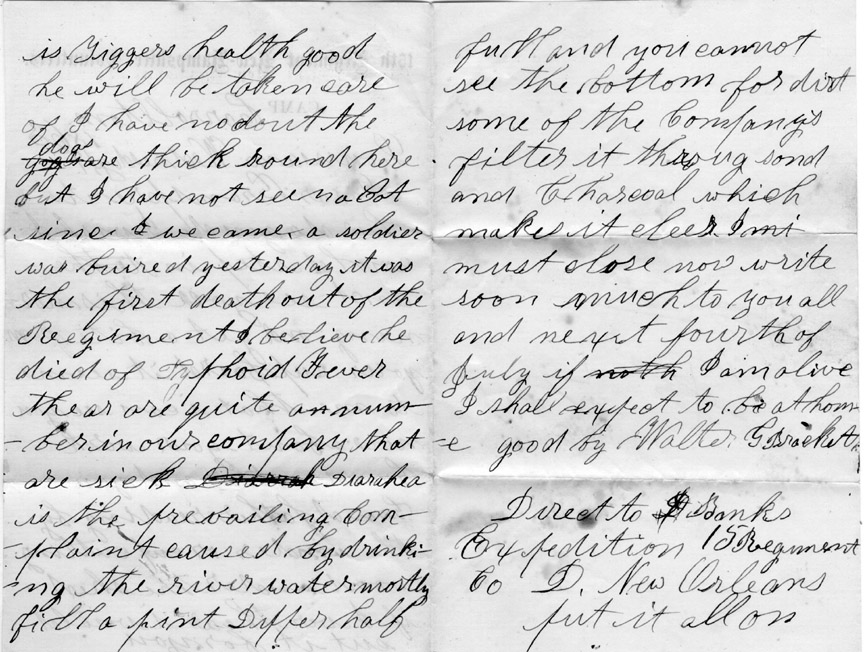 is Biggers health good
he will be taken care
of I have no dout the
dogs
are thick round here
but I have not see no Cat
since I we came a soldier
was buired yesterday it was
the first death out of the
Regiment I believe he
died of Typhoid Fever
thear are quite an num-
ber in our company that
are sick Diarrah Diarahea
is the prevailing Com-
-plaint caused by drinki-
-ng the river water mostly
fill a pint Dipper half
full and you cannot
see the bottom for dirt
some of the Companys
filter it throug sand
and Charcoal which
makes it cleer I mi
must close now write
soon much to you all
and next fourth of
July if noth I am alive
I shall expect to be at hom
-e good by Walter G Brackett
Direct to Banks
Expedition 15 Regiment
Co D. New Orleans
put it all on